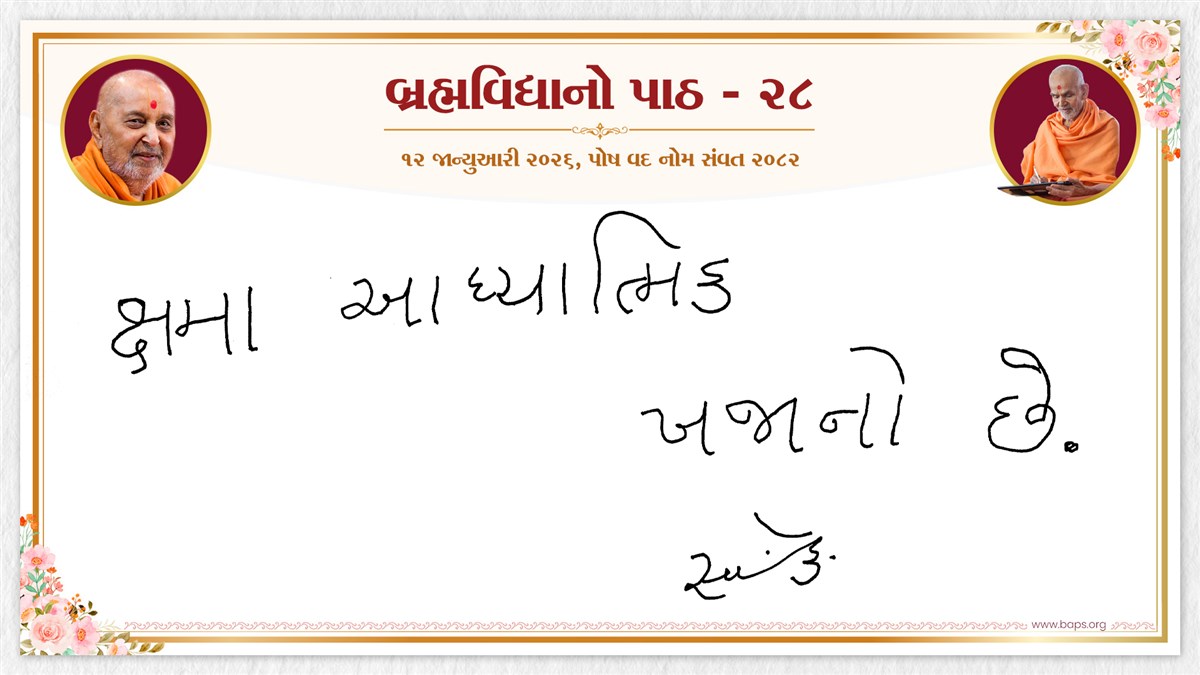 બ્રહ્મવિદ્યાનો પાઠ - ૨૮
૧૨ જાન્યુઆરી ૨૦૨૬, પોષ વદ નોમ સંવત ૨૦૮૨
ક્ષમા આધ્યાત્મિક
ખજાનો છે.
www.baps.org